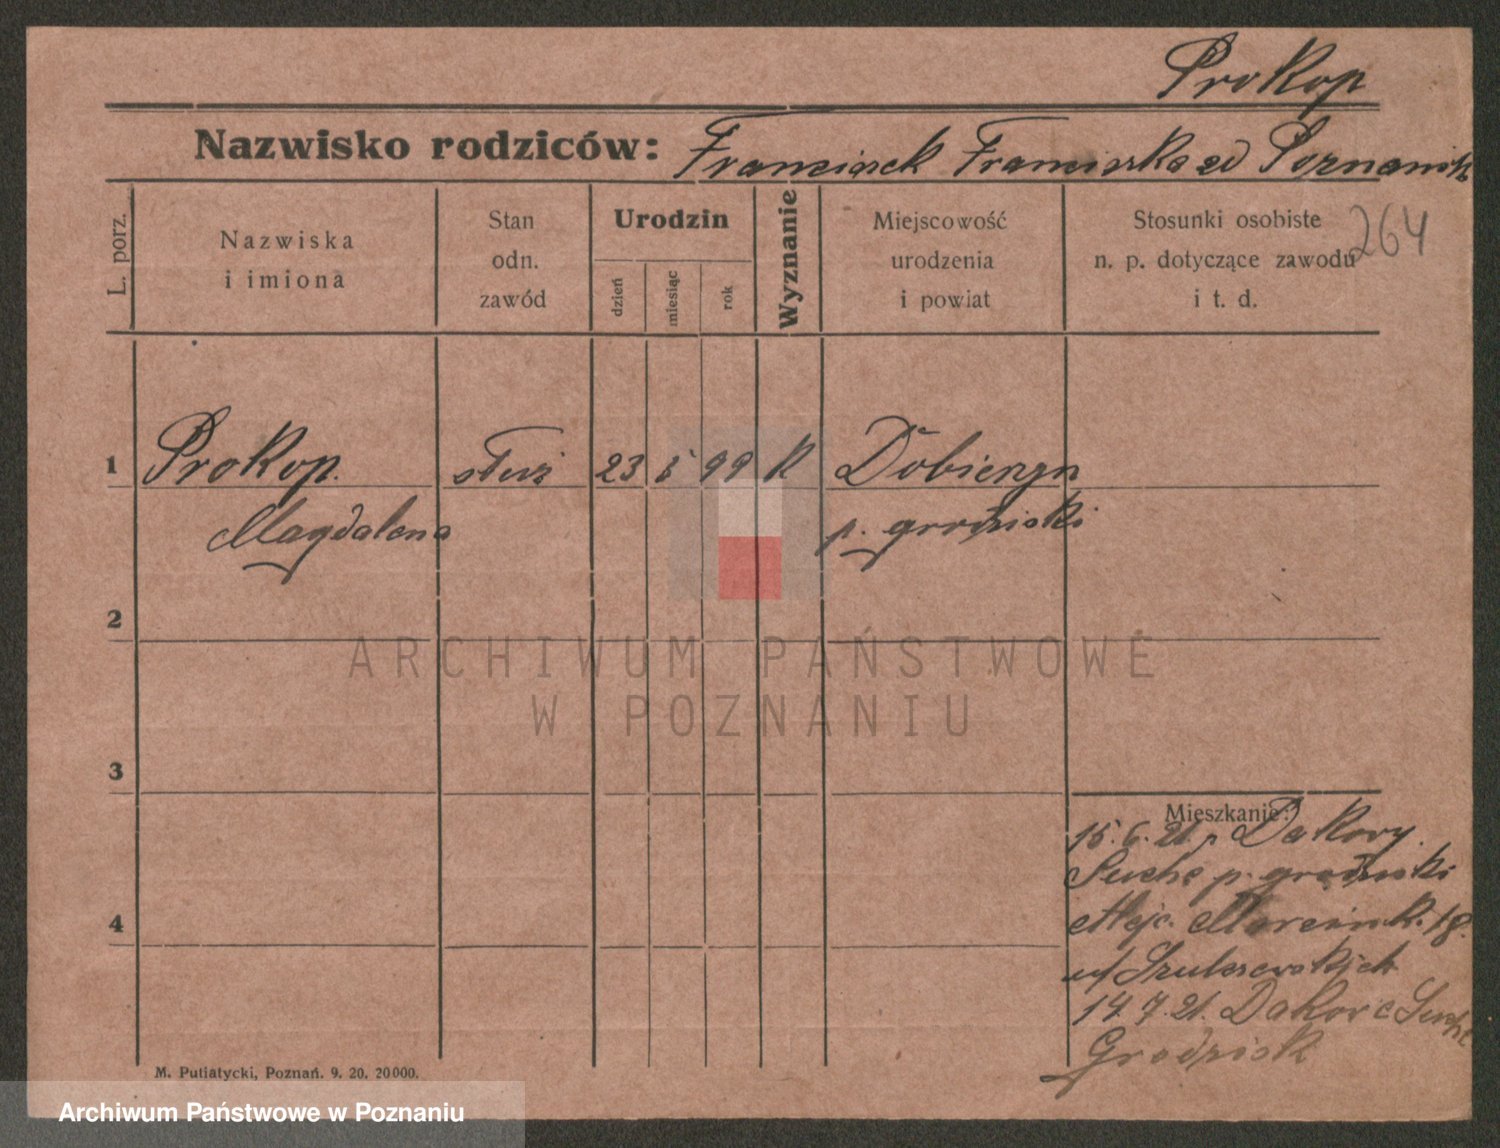 Prokop
Nazwisko rodziców: Franciszek Franciszka zd Poznańsk
L. porz.
Nazwiska
i imiona
Stan
odn.
zawód
Urodzin
dzień
miesiąc
rok
Wyznanie
Miejscowość
urodzenia
i powiat
Stosunki osobiste
n. p. dotyczące zawodu
i t. d.
264
1 Prokop służ 23 5 99 K Dobieżyn
Magdalena p. grodziski
2
3
4
Mieszkanie:
15.6.21. p Dakowy
Suche p. grodziski
Alejc. Marcink. 18.
u/ Szulczewskich
14.7.21. Dakowe Suche
Grodzisk
M. Putiatycki, Poznań. 9. 20. 20000.
ARCHIWUM PAŃSTWOWE
W POZNANIU
Archiwum Państwowe w Poznaniu